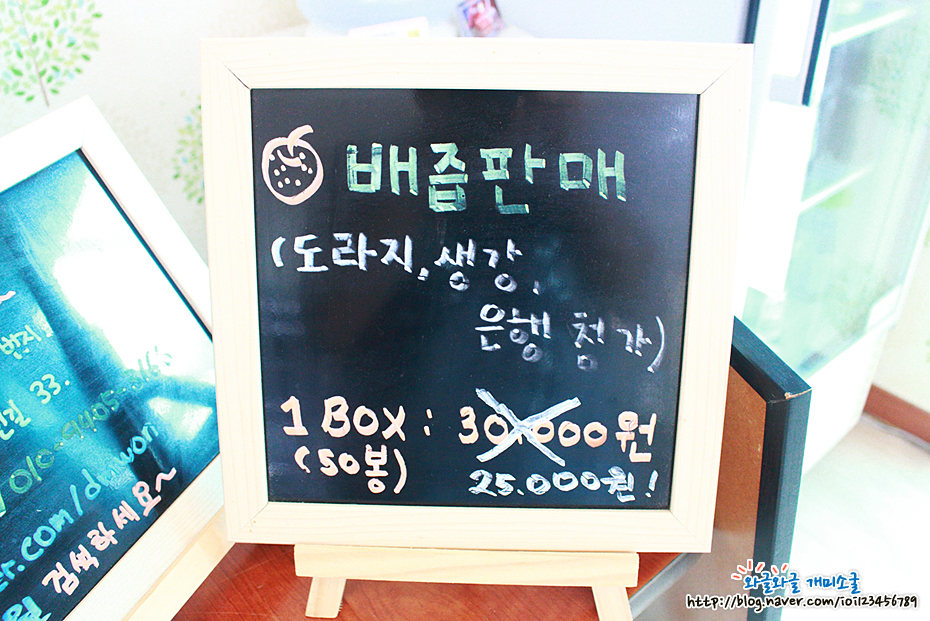 배즙판매
(도라지, 생강,
은행 첨가)
1 Box : 30.000원
(50봉)
25.000원!
번지
33.
검색하세요~
와글와글 개미소굴
http://blog.naver.com/ioi123456789